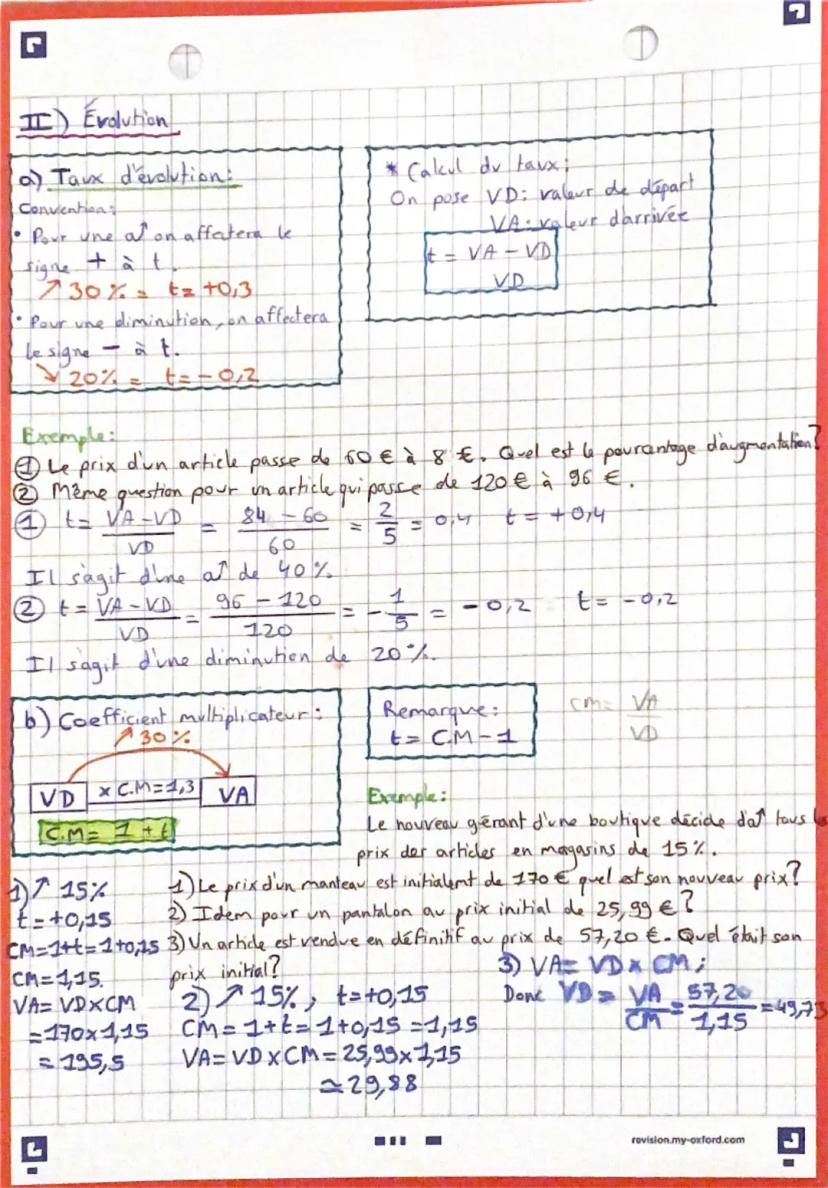 II) Évolution
a) Taux d'évolution:
Convention:
• Pour une a↑ on affectera le
signe + à t.
↗ 30 % = t = +0,3
• Pour une diminution, on affectera
le signe - à t.
↘ 20% = t = -0,2
* Calcul du taux:
On pose VD: valeur de départ
VA: valeur d'arrivée
t = VA - VD
VD
Exemple:
① Le prix d'un article passe de 60 € à 8 €. Quel est le pourcentage d'augmentation?
② Même question pour un article qui passe de 120 € à 96 €.
① t = VA-VD / VD = 84 - 60 / 60 = 2/5 = 0,4 t = +0,4
Il s'agit d'une a↑ de 40 %.
② t = VA - VD / VD = 96 - 120 / 120 = - 1/5 = -0,2 t = -0,2
Il s'agit d'une diminution de 20 %.
b) Coefficient multiplicateur:
↗ 30 %
VD × C.M = 1,3 VA
C.M = 1 + t
Remarque:
t = C.M - 1
CM = VA / VD
Exemple:
Le nouveau gérant d'une boutique décide d'a↑ tous les
prix des articles en magasins de 15 %.
1) Le prix d'un manteau est initialemt de 170 € quel est son nouveau prix?
2) Idem pour un pantalon au prix initial de 25,99 €?
3) Un article est vendue en définitif au prix de 57,20 €. Quel était son
prix initial?
1) ↗ 15%
t = +0,15
CM = 1+t = 1+0,15
CM = 1,15.
VA = VD×CM
= 170×1,15
= 195,5
2) ↗ 15%, t = +0,15
CM = 1+t = 1+0,15 = 1,15
VA = VD × CM = 25,99 × 1,15
≃ 29,88
3) VA = VD × CM;
Donc VD = VA / CM = 57,20 / 1,15 = 49,73
revision.my-oxford.com